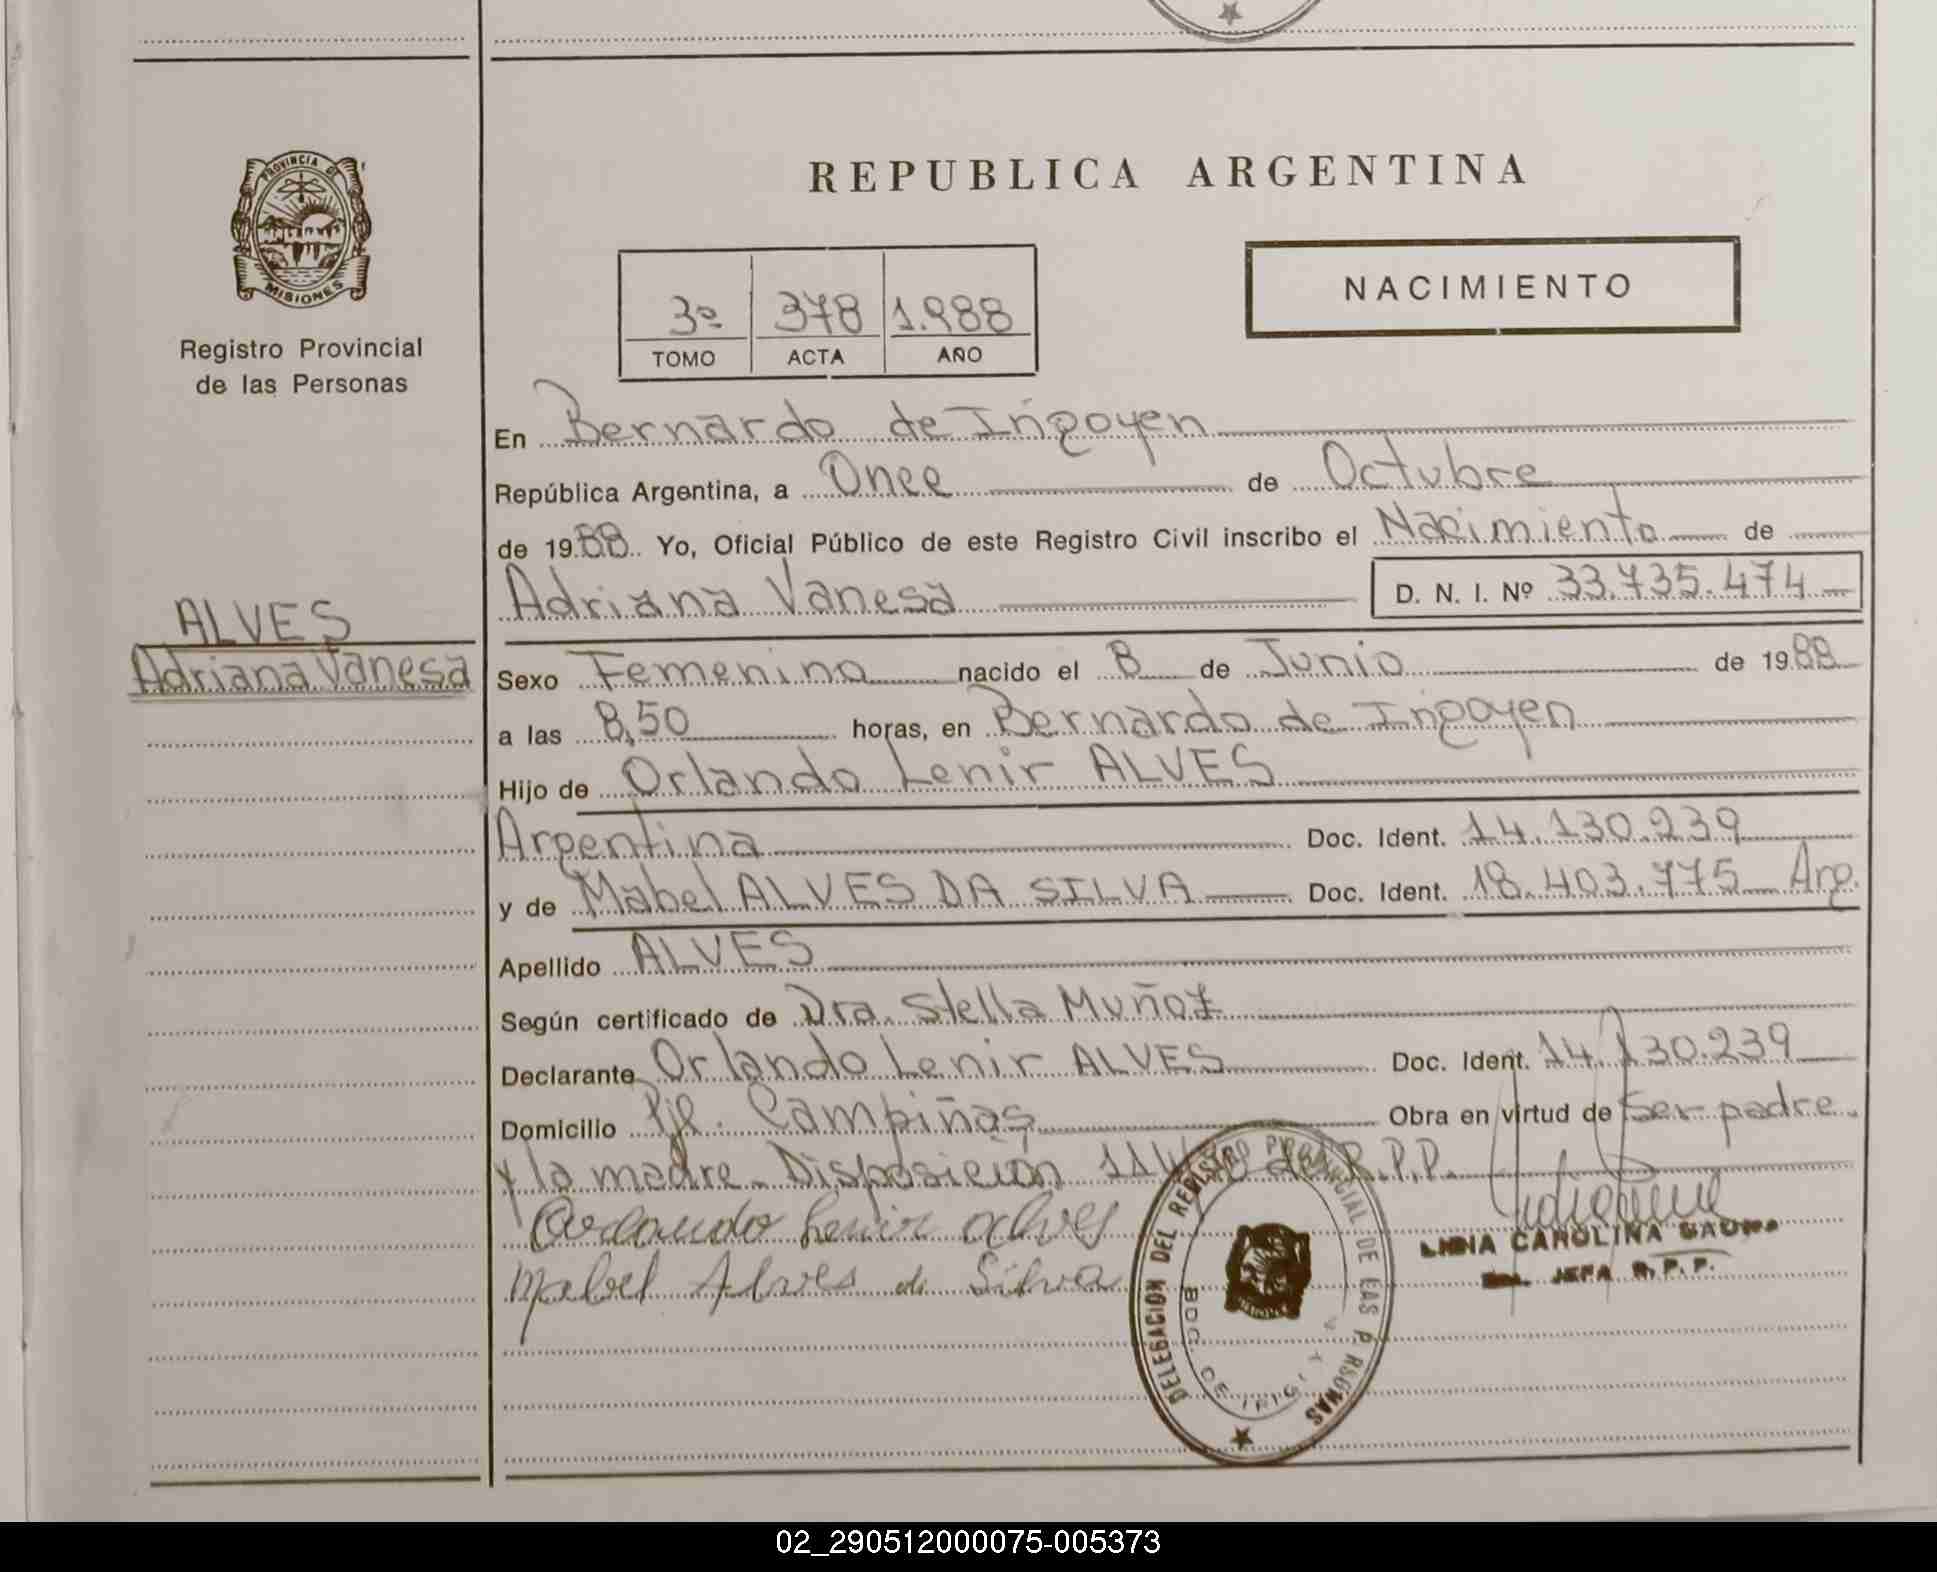 PROVINCIA DE
MISIONES
Registro Provincial
de las Personas
ALVES
Adriana Vanesa
REPUBLICA ARGENTINA
3º 378 1.988
TOMO ACTA AÑO
NACIMIENTO
En Bernardo de Irigoyen
República Argentina, a Once de Octubre
de 1988 Yo, Oficial Público de este Registro Civil inscribo el Nacimiento de
Adriana Vanesa D. N. I. Nº 33.735.474
Sexo Femenino nacido el 8 de Junio de 1988
a las 8,50 horas, en Bernardo de Irigoyen
Hijo de Orlando Lenir ALVES
Argentina Doc. Ident. 14.130.239
y de Mabel ALVES DA SILVA Doc. Ident. 18.403.775 Arg.
Apellido ALVES
Según certificado de Dra. Stella Muñoz
Declarante Orlando Lenir ALVES Doc. Ident. 14.130.239
Domicilio Pje. Campiñas Obra en virtud de Ser padre
y la madre. Disposición R.P.P.
Orlando Lenir alves
Mabel Alves da Silva
DELEGACION DEL REGISTRO PROVINCIAL DE LAS P RSONAS
BDO. DE IRIGOYEN
CAROLINA
JEFA R.P.P.
02_290512000075-005373